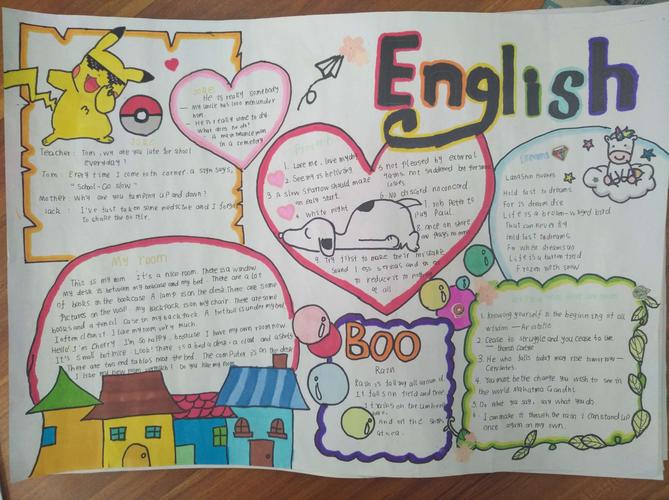 English
JOKE
Teacher: Tom, why are you late for school
everyday?
Tom: Every time I come to the corner, a sign says,
"School - Go slow".
Mother: Why are you jumping up and down?
Jack: I've just taken some medicine and I forgot
to shake the bottle.
JOKE
He is really somebody
- My uncle has 1000 men under
him.
- He is really somebody
What does he do?
- A maintenance man
in a cemetery.
1. Love me, love my dog
2. Seeing is believing
3. a slow sparrow should make
an early start.
4. white night
5. not pleased by external
gains, not saddened by personal
losses
6. No discord, no concord
7. rob Peter to
pay Paul.
9. Try first to make their mistake
sound less serious and then
to reduce it to nothing
at all
Dreams
Langston Hughes
Hold fast to dreams
For if dreams die
Life is a broken-winged bird
That can never fly
Hold fast to dreams
For when dreams go
Life is a barren field
Frozen with snow
My room
This is my room. It's a nice room. There is a window
My desk is between my bookcase and my bed. There are a lot
of books on the bookcase. A lamp is on the desk. There are some
Pictures on the wall. My backpack is on my chair. There are some
books and a pencil case in my backpack. A football is under my bed.
I often clean it. I like my room very much.
Hello! I'm Cherry. I'm so happy, because I have my own room now
It's small but nice. Look! There is a bed, a desk, a
There are two end tables near the bed. The computer is on the desk
BOO
Rain
Rain is falling all around
It falls on field and tree
It rains on the umbrella
And on the ships
at sea.
1. Knowing yourself is the beginning of all
wisdom — Aristotle
2. Cease to struggle and you cease to live
— Thomas Carlyle
3. He who falls today may rise tomorrow —
Cervantes
4. You must be the change you wish to see in
the world. Mahatma Gandhi
5. Do what you say, say what you do.
6. I can make it through the rain. I can stand up
once again on my own.